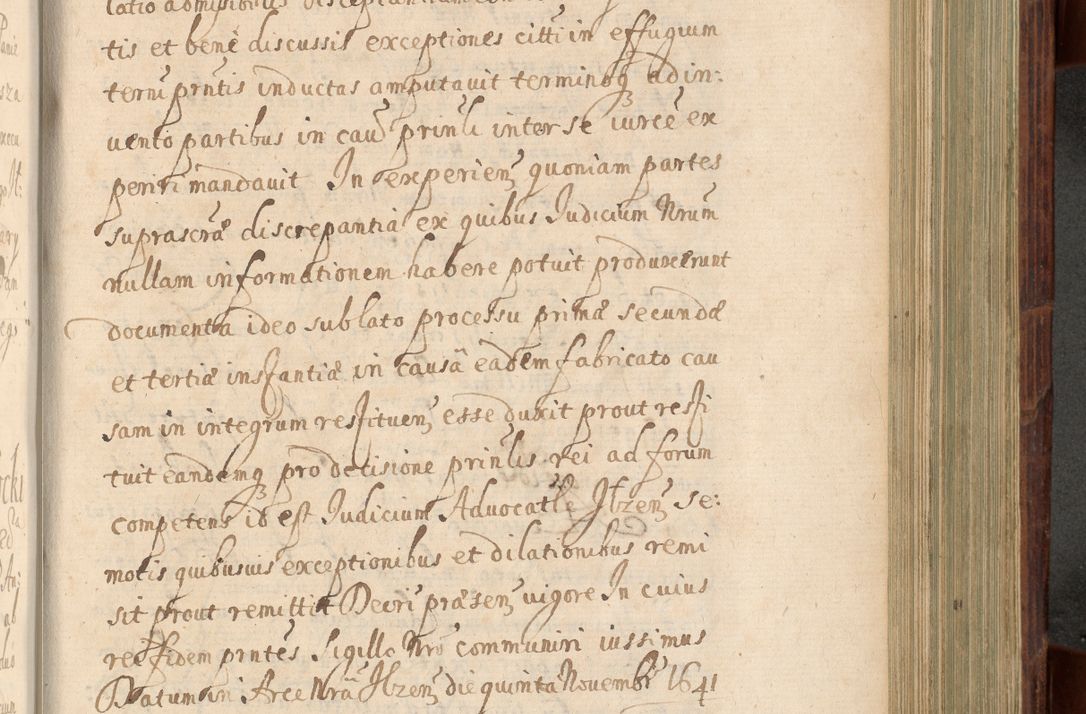 tis et bene discussis exceptiones citti in effugium
terni prntis inductas amputavit terminoq adin:
vento partibus in cau prinli inter se iurce ex
periri mandavit In experien quoniam partes
suprascræ discrepantia ex quibus Iudicium Nrum
nullam informationem habere potuit produxerunt
documenta ideo sublato processu primæ secundæ
et tertiæ instantiæ in causa eadem fabricato cau
sam in integrum restituen esse duxit prout resti
tuit eandemq pro decisione prinlis rei ad forum
competens id est Iudicium Advocatle Ilzen se:
motis quibusvis exceptionibus et dilationibus remi
sit prout remittit Decri præsen vigore In cuius
rei fidem prntes Sigillo Nro communiri iussimus
Datum in Arce Nra Ilzen die quinta Novembr 1641